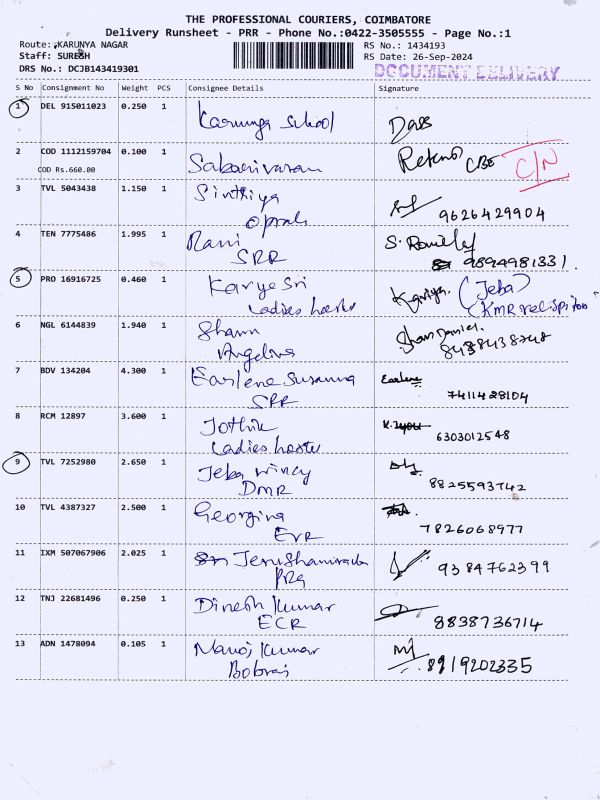 THE PROFESSIONAL COURIERS, COIMBATORE
Delivery Runsheet - PRR - Phone No.:0422-3505555 - Page No.:1
Route: KARUNYA NAGAR
RS No.: 1434193
Staff: SURESH
RS Date: 26-Sep-2024
DRS No.: DCJB143419301
DOCUMENT DELIVERY
S No Consignment No Weight PCS Consignee Details Signature
1 DEL 915011023 0.250 1 Karunya School Dass
2 COD 1112159704 0.100 1 Sabarivasan Return CBE C/N
COD Rs.660.00
3 TVL 5043438 1.150 1 Sinthiya
9626429904
4 TEN 7775486 1.995 1 Rani S.
SRR 9894981331.
5 PRO 16916725 0.460 1 Kavye Sri Kaviya. (Jeba)
Ladies hoster KMR
6 NGL 6144839 1.940 1 Shann
Angelina 8438438748
7 BDV 134204 4.300 1 Earlene Susanna Earlene
SRR 7411428104
8 RCM 12897 3.600 1 Jothik
Ladies hoster 6303012548
9 TVL 7252980 2.650 1 Jeba wincy
DMR 8825593742
10 TVL 4387327 2.500 1 Georgina
EVR 7826068977
11 IXM 507067906 2.025 1 9384762399
12 TNJ 22681496 0.250 1 Dinesh Kumar
ECR 8838736714
13 ADN 1478094 0.105 1 Manoj Kumar
8919202335